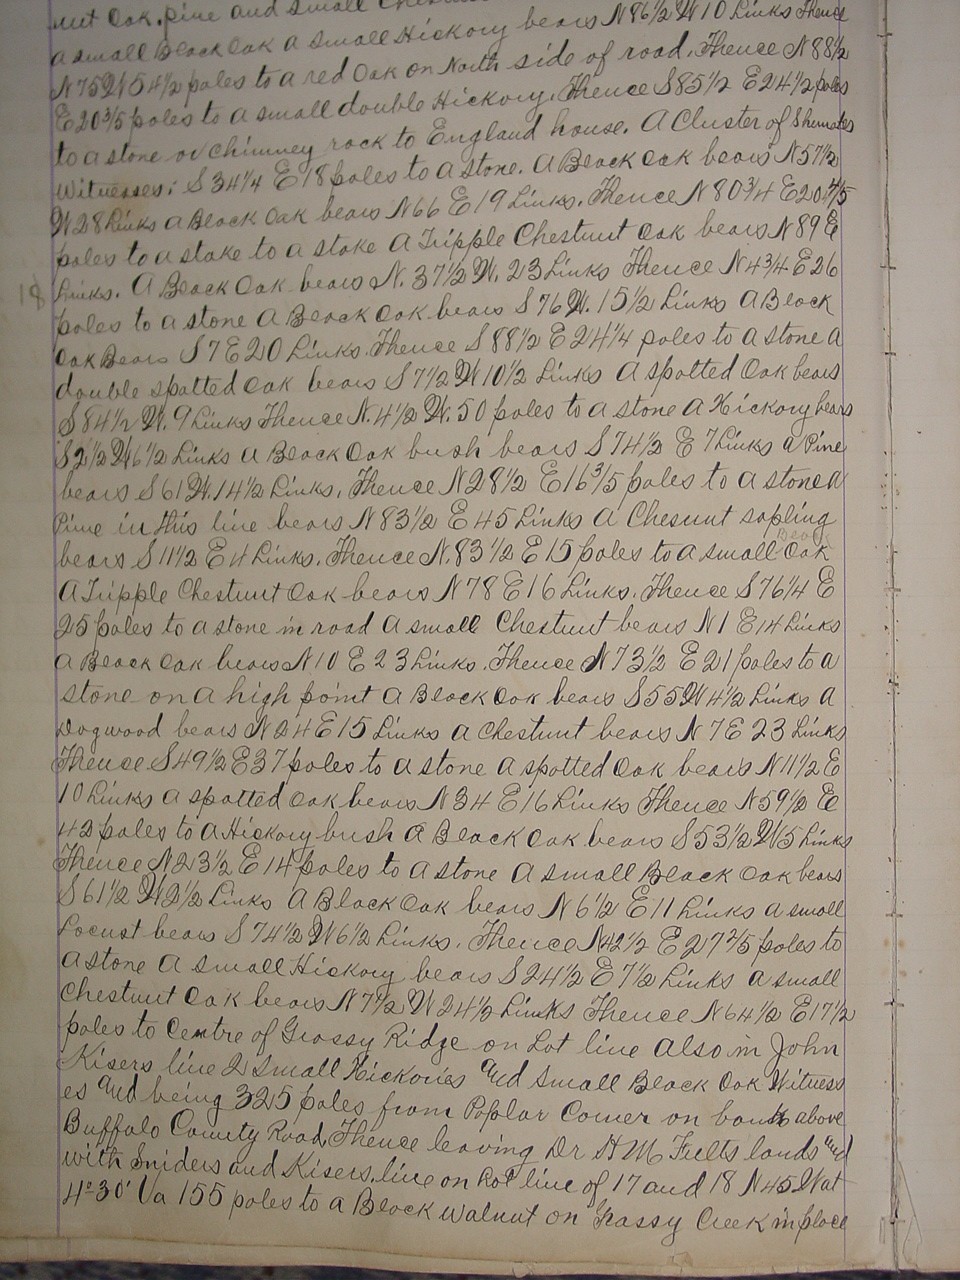 nut Oak, pine and small
a small Black Oak a small Hickory bears N86½ W10 Links Thence
N75W54½ poles to a red Oak on North side of road. Thence N88½
E20⅗ poles to a small double Hickory. Thence S85½ E24½ poles
to a stone or chimney rock to England house. A Cluster of Shumates
Witnesses: S34¼ E18 poles to a stone. A Black Oak bears N57½
W28 Links a Black Oak bears N66 E19 Links. Thence N80¾ E20⅘
poles to a stake to a stake A Tripple Chestnut Oak bears N89 E
18 Links. A Black Oak bears N.37½ W. 23 Links Thence N4¾ E26
poles to a stone A Black Oak bears S76 W. 15½ Links A Black
Oak Bears S7 E20 Links. Thence S88½ E24¼ poles to a stone a
double spotted Oak bears S7½ W10½ Links A spotted Oak bears
S84½ W. 9 Links Thence N.4½ W. 50 poles to a stone A Hickory bears
S2½ W6½ Links a Black Oak bush bears S74½ E 7 Links a Pine
bears S61 W. 14½ Links. Thence N28½ E16⅗ poles to a stone A
Pine in this line bears N83½ E45 Links A Chesnut sapling
bears S11½ E4 Links. Thence N.83½ E15 poles to a small Black Oak
A Tripple Chestnut Oak bears N78 E16 Links. Thence S76¼ E
25 poles to a stone in road A small Chestnut bears N1 E14 Links
a Black Oak bears N10 E23 Links. Thence N73½ E21 poles to a
stone on a high point A Black Oak bears S55W4½ Links A
Dogwood bears N24E15 Links a Chestnut bears N7E 23 Links
Thence S49½ E37 poles to a stone A spotted Oak bears N11½ E
10 Links A spotted Oak bears N34 E16 Links Thence N59½ E
42 poles to a Hickory bush A Black Oak bears S53½ W5 Links
Thence N23½ E14 poles to a stone a small Black Oak bears
S61½ W2½ Links A Black Oak bears N6½ E11 Links a small
Locust bears S74½ W6½ Links. Thence N42½ E27⅖ poles to
a stone A small Hickory bears S24½ E7½ Links a small
Chestnut Oak bears N7½ W24½ Links Thence N64½ E17½
poles to Centre of Grassy Ridge on Lot line also in John
Kisers line 2 small Hickories and small Black Oak Witness
es and being 325 poles from Poplar Corner on bank above
Buffalo County Road, Thence leaving Dr H M Fults lands and
with Sniders and Kisers line on Lot line of 17 and 18 N45 W at
4° 30' Va 155 poles to a Black Walnut on Grassy Creek in place